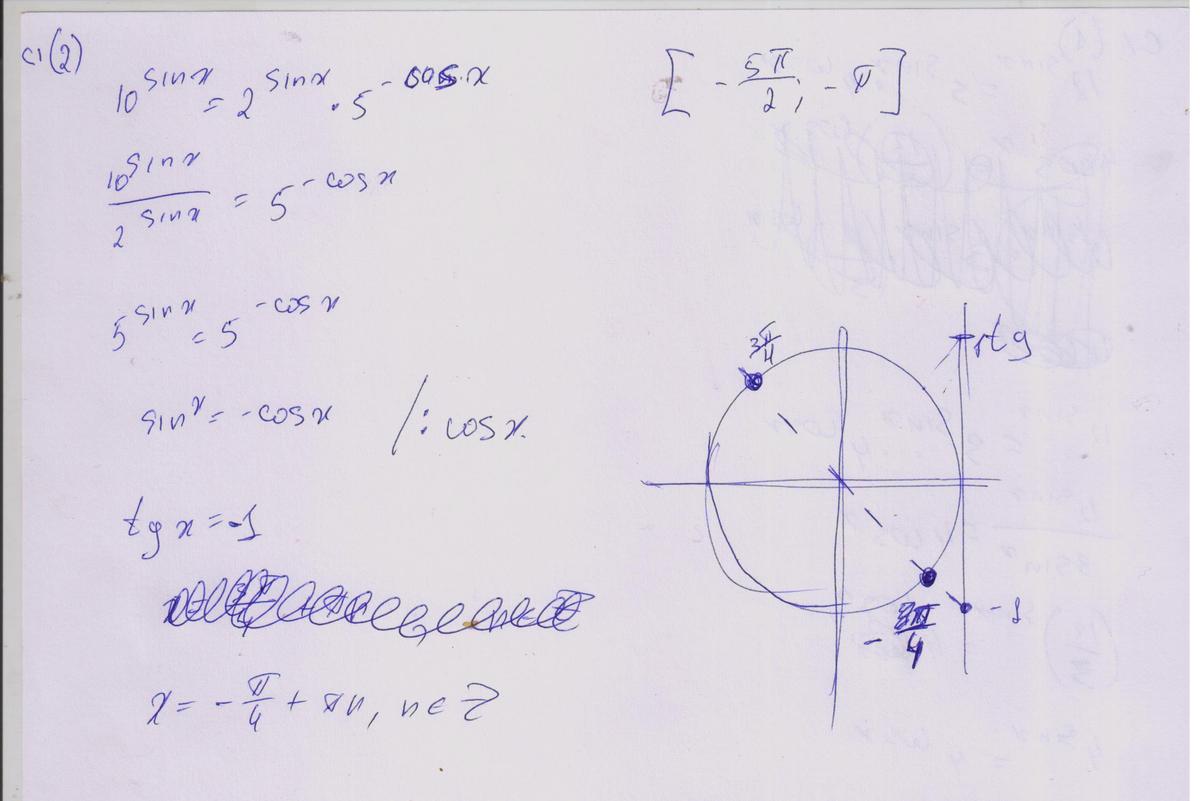 C1(2)
10^sinx = 2^sinx · 5^-cos x
[-5π/2; -π]
10^sinx / 2^sinx = 5^-cosx
5^sinx = 5^-cosx
sinx = -cosx /: cosx.
tg x = -1
x = -π/4 + πn, n ∈ Z
3π/4
tg
-1